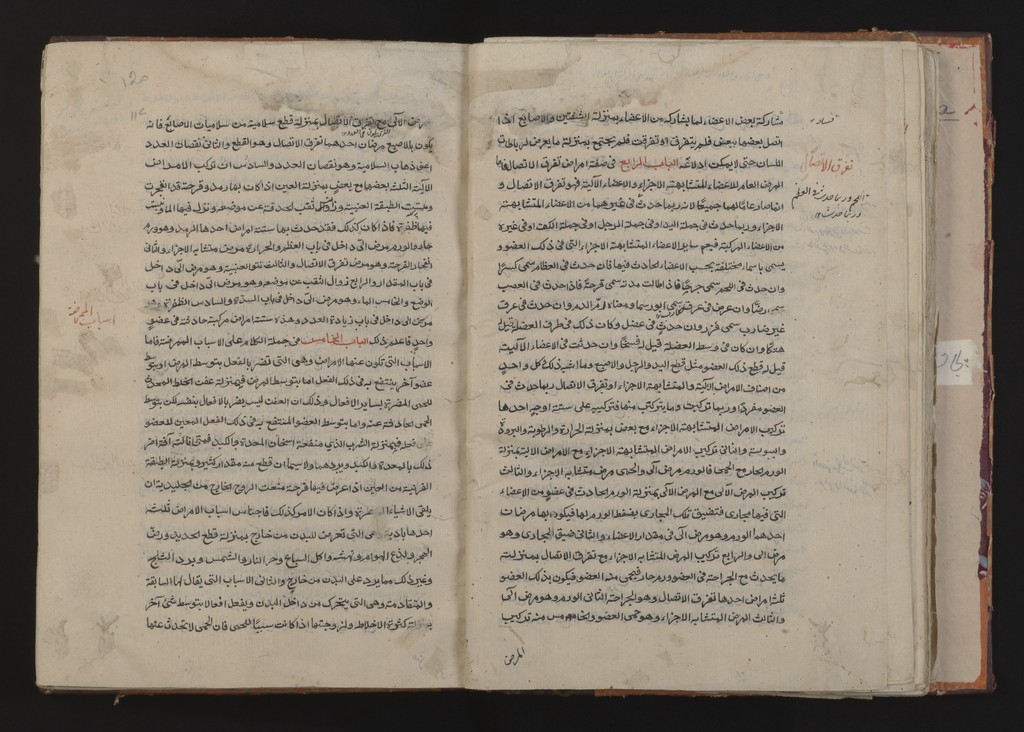 مشاركة بعض الاعضاء لما يشاركه من الاعضاء بمنزلة الشفتين والاصابع اذا
اتصل بعضها ببعض فلم يتفرق او تفرقت فلم يجتمع بمنزلة ما يعرض لرباطات
اللسان حتى لا يمكن ادلاعه الباب الرابع في صفة امراض تفرق الاتصال فاما
المرض العام للاعضاء المتشابهة الاجزاء والاعضاء الآلية فهو تفرق الاتصال و
انما صار عاما لهما جميعا لانه ربما حدث في غيرهما من الاعضاء المتشابهة
الاجزاء وربما حدث في جملة اليد او في جملة الرجل او في جملة الكف او في غيره
من الاعضاء المركبة فيعم ساير الاعضاء المتشابهة الاجزاء التي في ذلك العضو و
يسمى باسماء مختلفة بحسب الاعضاء الحادث فيها فان حدث في العظام سمي كسرا
وان حدث في اللحم سمي جرحا فاذا طالت مدته سمي قرحة فاذا حدث في العصب
سمي رضا وان عرض في عرق سمي انورسما ومعناه ام الدم وان حدث في عرق
غير ضارب سمي فزر وان حدث في عضل وكان ذلك في طرف العضلة قيل
هتكا وان كان في وسط العضلة قيل فسخا وان حدثت في الاعضاء الآلية
قيل له قطع ذلك العضو مثل قطع اليد والرجل والاصبع وما اشبه ذلك وكل واحد
من اصناف الامراض الآلية والمتشابهة الاجزاء وتفرق الاتصال ربما حدث في
العضو مفردا وربما تركبت وما يتركب منها فتركيبه على ستة اوجه احدها
تركيب الامراض المتشابهة الاجزاء مع بعض بمنزلة الحرارة والرطوبة والبرودة
واليبوسة والثاني تركيب الامراض المتشابهة الاجزاء مع الامراض الآلية بمنزلة
الورم الحار مع الحمى فالورم مرض آلي والحمى مرض متشابه الاجزاء والثالث
تركيب المرض الآلي مع المرض الآلي بمنزلة الورم الحادث في عضو من الاعضاء
التي فيها مجاري فتضيق تلك المجاري بضغط الورم لها فيكون بها مرضان
احدهما الورم وهو مرض آلي في مقدار الاعضاء والثاني ضيق المجاري وهو
مرض آلي والرابع تركيب المرض المتشابه الاجزاء مع تفرق الاتصال بمنزلة
ما يحدث مع الجراحة في العضو ورم حار فيحمى منه العضو فيكون بذلك العضو
ثلثة امراض احدها تفرق الاتصال وهو الجراحة الثاني الورم وهو مرض آلي
والثالث المرض المتشابه الاجزاء وهو حمى العضو والخامس منه تركيب
المرض
تفرق الاتصال
المرض الآلي مع تفرق الاتصال بمنزلة قطع سلامية من سلاميات الاصابع فانه
يكون بالاصبع مرضان احدهما تفرق الاتصال وهو القطع والثاني نقصان العدد
اعني ذهاب السلامية وهو نقصان العدد والسادس ان تركب الامراض
الآلية الثلثة بعضها مع بعض بمنزلة العين اذا كان بها رمد وقرحة قد انخرقت
الطبقة العنبية ثقب الحدقة عن موضعه ونزل فيها الماء ونبتت
فيها ظفرة فاذا كان كذلك فقد حدث بها ستة امراض احدها الرمد وهو ورم
حار والورم مرض آلي داخل في باب العظم والحرارة مرض متشابه الاجزاء والثاني
انخراق القرحة وهو مرض تفرق الاتصال والثالث نتو العنبية وهو مرض آلي داخل
في باب المقدار والرابع زوال الثقب عن موضعه وهو مرض آلي داخل في باب
الوضع والخامس الماء وهو مرض آلي داخل في باب السدة والسادس الظفرة وهو
مرض آلي داخل في باب زيادة العدد وهذه ستة امراض مركبة حادثة في عضو
واحد فاعلم ذلك الباب الخامس في جملة الكلام على الاسباب الممرضة فاما
الاسباب التي تكون عنها الامراض وهي التي تضر بالفعل بتوسط المرض او بتوسط
عضو آخر ينتفع به في ذلك الفعل اما بتوسط المرض فبمنزلة عفن الخلط المحدث
للحمى المضرة بساير الافعال وذلك ان العفن ليس يضر بالافعال بنفسه لكن بتوسط
الحمى الحادثة عنه واما بتوسط العضو المنتفع به في ذلك الفعل المعين للعضو
على فعله فبمنزلة الثرب الذي منفعته اسخان المعدة والكبد فمتى نالته آفة اضر
ذلك بالمعدة والكبد وبردهما ولا سيما ان قطع منه مقدار كثير وبمنزلة الطبقة
القرنية من العين اذا عرض فيها قرحة منعت الروح الخارج من الجليدية ان
يلقى الاشياء المبصرة واذا كان الامر كذلك فاجناس اسباب الامراض ثلثة
احدها بادية وهي التي تعرض للبدن من خارج بمنزلة قطع الحديد ورض
الحجر ولذع الهوام ونهشه واكل السباع وحر النار والشمس وبرد الثلج
وغير ذلك مما يرد على البدن من خارج والثاني الاسباب التي يقال لها السابقة
والمتقادمة وهي التي يتحرك من داخل البدن ويفعل افعالا بتوسط شيء آخر
بمنزلة كثرة الاخلاط ولزوجتها اذا كانت سببا للحمى فان الحمى لا تحدث عنها
اسباب الممرضة